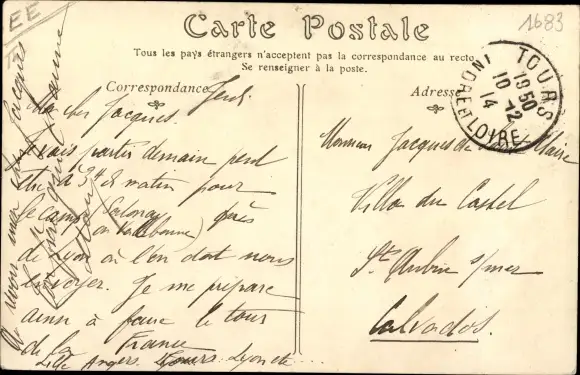 EE
1683
Carte Postale
Tous les pays étrangers n'acceptent pas la correspondance au recto
Se renseigner à la poste.
Correspondance
Adresse
TOURS
1850
10-12
14
INDRE ET LOIRE
Jeudi.
Mon cher Jacques.
partir demain peut
être à 3h du matin pour
le camp Satonay près
ou Valbonne)
de Lyon où l'on doit nous
envoyer. Je me prépare
ainsi à faire le tour
de la France
Lille Angers. Tours. Lyon etc....
A mon cher Jacques
Monsieur Jacques de
Villa du Castel
St. Aubin s/mer
Calvados.